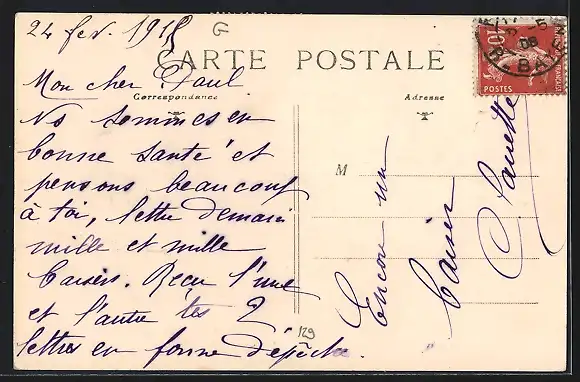 24 fev. 1915
G
CARTE POSTALE
Mon cher Paul
Correspondance
Adresse
Ns sommes en
bonne santé et
pensons beaucoup
à toi, lettre demain
mille et mille
baisers. Reçu l'une
et l'autre tes 2
lettres en forme dépêche.
M
Encore un
baiser
129
10
POSTES
08